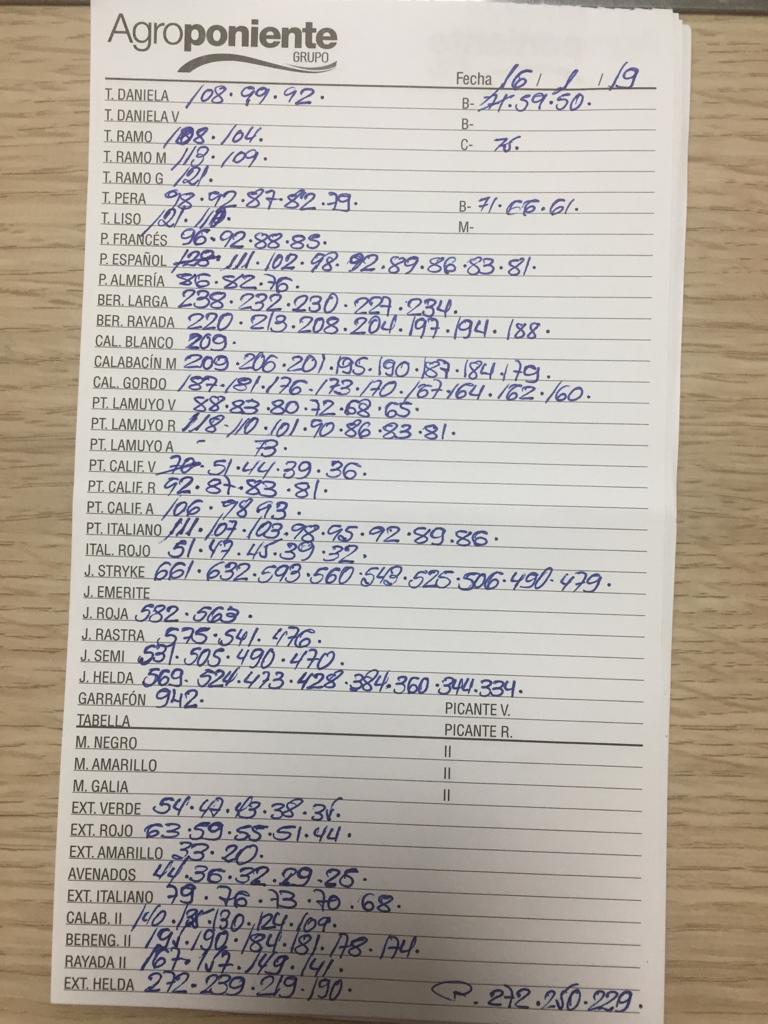 Agroponiente
GRUPO
Fecha 16 / 1 / 19
T. DANIELA 108. 99. 92. B- 71.59.50.
T. DANIELA V B-
T. RAMO 108. 104. C- 75.
T. RAMO M 113. 109.
T. RAMO G 121.
T. PERA 98. 92. 87. 82. 79. B- 71. 66. 61.
T. LISO 121. M-
P. FRANCÉS 96. 92. 88. 85.
P. ESPAÑOL 128. 111. 102. 98. 92. 89. 86. 83. 81.
P. ALMERÍA 86. 82. 76.
BER. LARGA 238. 232. 230. 227. 234.
BER. RAYADA 220. 213. 208. 204. 197. 194. 188.
CAL. BLANCO 209.
CALABACÍN M 209. 206. 201. 195. 190. 187. 184. 179.
CAL. GORDO 187. 181. 176. 173. 170. 167. 164. 162. 160.
PT. LAMUYO V 88. 83. 80. 72. 68. 65.
PT. LAMUYO R 118. 110. 101. 90. 86. 83. 81.
PT. LAMUYO A - 73.
PT. CALIF. V 70. 51. 44. 39. 36.
PT. CALIF. R 92. 87. 83. 81.
PT. CALIF. A 106. 98 93.
PT. ITALIANO 111. 107. 103. 98. 95. 92. 89. 86.
ITAL. ROJO 51. 47. 45. 39. 32.
J. STRYKE 661. 632. 593. 560. 543. 525. 506. 490. 479.
J. EMERITE
J. ROJA 582. 563.
J. RASTRA 575. 541. 476.
J. SEMI 531. 505. 490. 470.
J. HELDA 569. 524. 473. 428. 384. 360. 344. 334.
GARRAFÓN 942. PICANTE V.
TABELLA PICANTE R.
M. NEGRO II
M. AMARILLO II
M. GALIA II
EXT. VERDE 54. 47. 43. 38. 35.
EXT. ROJO 63. 59. 55. 51. 44.
EXT. AMARILLO 33. 20.
AVENADOS 44. 36. 32. 29. 25.
EXT. ITALIANO 79. 76. 73. 70. 68.
CALAB. II 140. 135. 130. 124. 109.
BERENG. II 195. 190. 184. 181. 178. 174.
RAYADA II 167. 157. 149. 141.
EXT. HELDA 272. 239. 219. 190. P. 272. 250. 229.